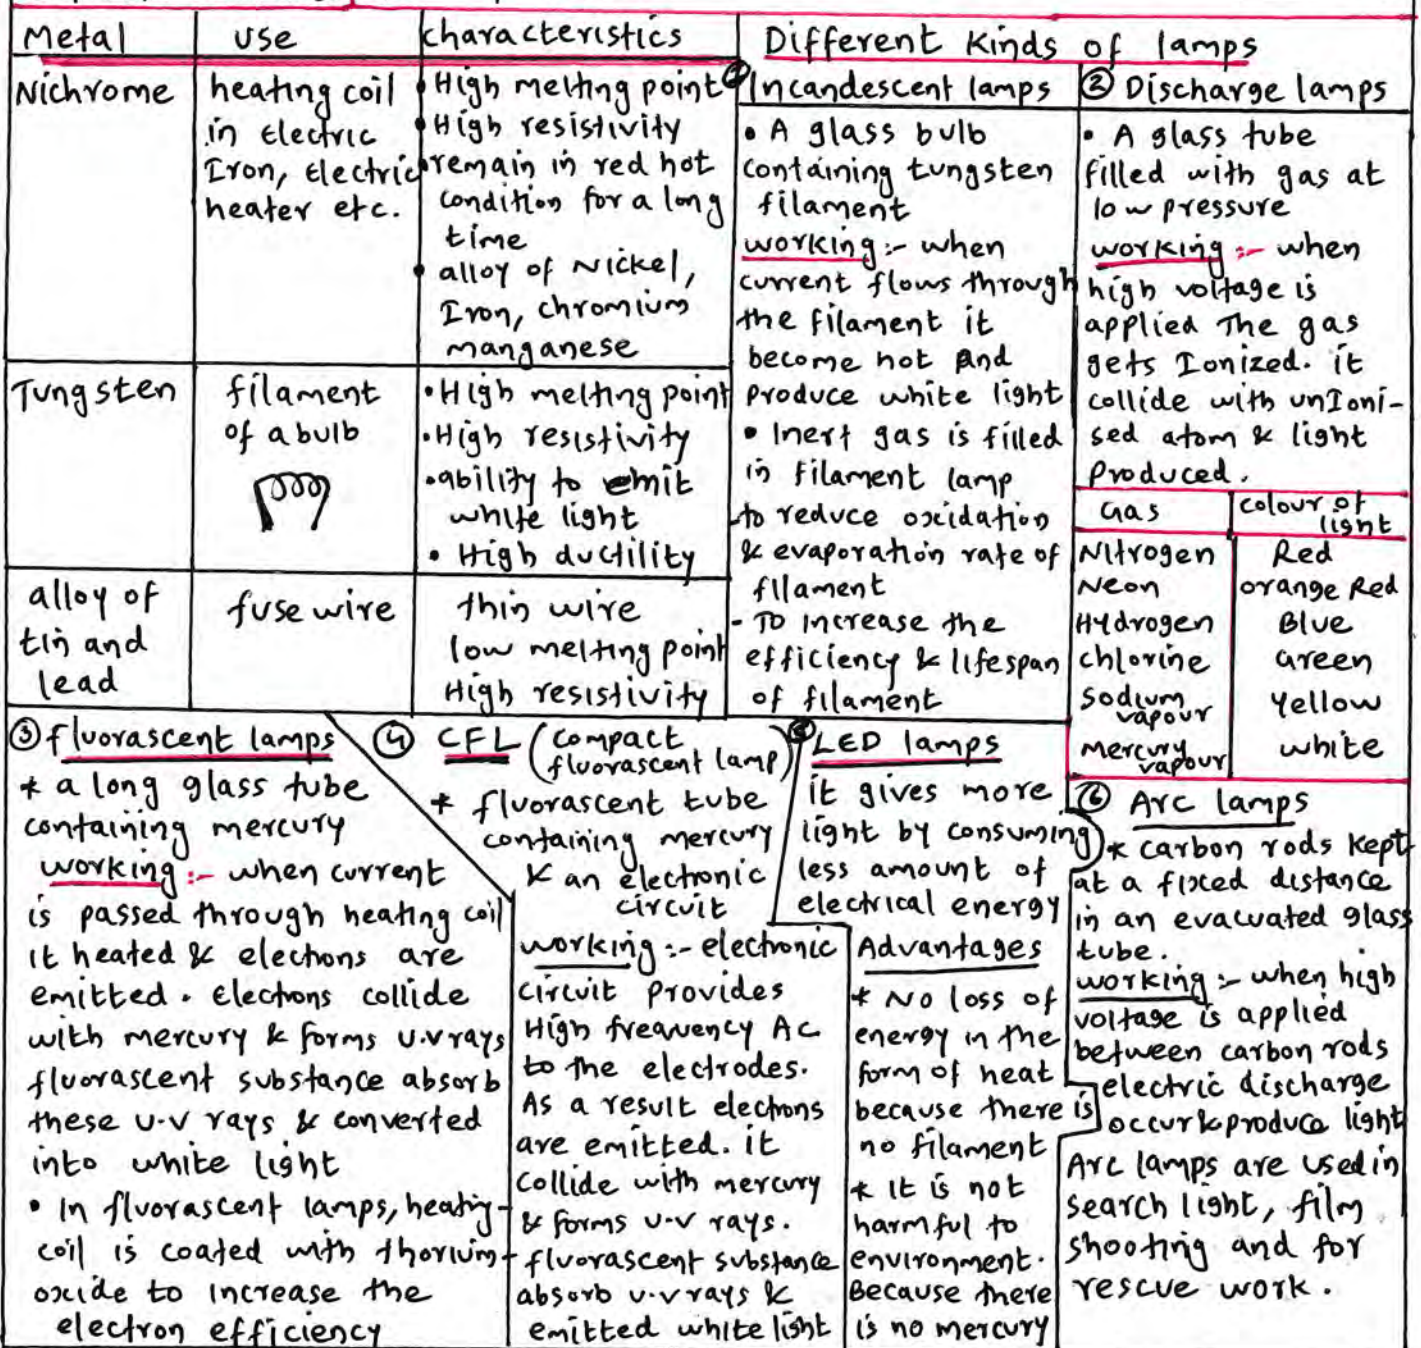 Metal
use
characteristics
Nichrome
heating coil
in Electric
Iron, Electric
heater etc.
• High melting point
• High resistivity
• remain in red hot
condition for a long
time
• alloy of Nickel,
Iron, chromium
manganese
Tungsten
filament
of a bulb
• High melting point
• High resistivity
• ability to emit
white light
• High ductility
alloy of
tin and
lead
fuse wire
thin wire
low melting point
High resistivity
Different Kinds of lamps
① Incandescent lamps
• A glass bulb
containing tungsten
filament
working :- when
current flows through
the filament it
become hot And
produce white light
• Inert gas is filled
in filament lamp
-to reduce oxidation
& evaporation rate of
filament
- To increase the
efficiency & lifespan
of filament
② Discharge lamps
• A glass tube
filled with gas at
low pressure
working :- when
high voltage is
applied The gas
gets Ionized. it
collide with unIoni-
sed atom & light
produced.
Gas
colour of
light
Nitrogen Red
Neon orange Red
Hydrogen Blue
chlorine Green
Sodium
vapour
yellow
Mercury
vapour
white
③ fluorascent lamps
* a long glass tube
containing mercury
working :- when current
is passed through heating coil
it heated & electrons are
emitted. Electrons collide
with mercury & forms u.v rays
fluorascent substance absorb
these u.v rays & converted
into white light
• In fluorascent lamps, heating-
coil is coated with thorium-
oxide to increase the
electron efficiency
④ CFL (compact
fluorascent lamp)
* fluorascent tube
containing mercury
& an electronic
circuit
working :- electronic
circuit provides
High frequency Ac
to the electrodes.
As a result electrons
are emitted. it
collide with mercury
& forms u.v rays.
fluorascent substance
absorb u.v rays &
emitted white light
⑤ LED lamps
it gives more
light by consuming
less amount of
electrical energy
Advantages
* No loss of
energy in the
form of heat
because there is
no filament
* It is not
harmful to
environment.
Because there
is no mercury
⑥ Arc lamps
* carbon rods kept
at a fixed distance
in an evacuated glass
tube.
working :- when high
voltage is applied
between carbon rods
electric discharge
occur & produce light
Arc lamps are used in
search light, film
shooting and for
rescue work.